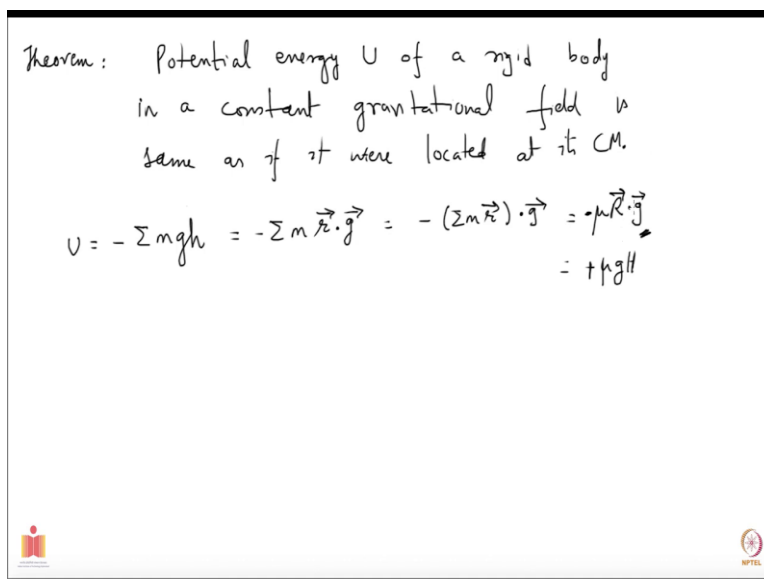 Theorem: Potential energy U of a rigid body
in a constant gravitational field is
same as if it were located at its CM.
U = - Σ mgh = - Σ m r⃗·g⃗ = - (Σ m r⃗)·g⃗ = -μR⃗·g⃗
= +μgH
NPTEL